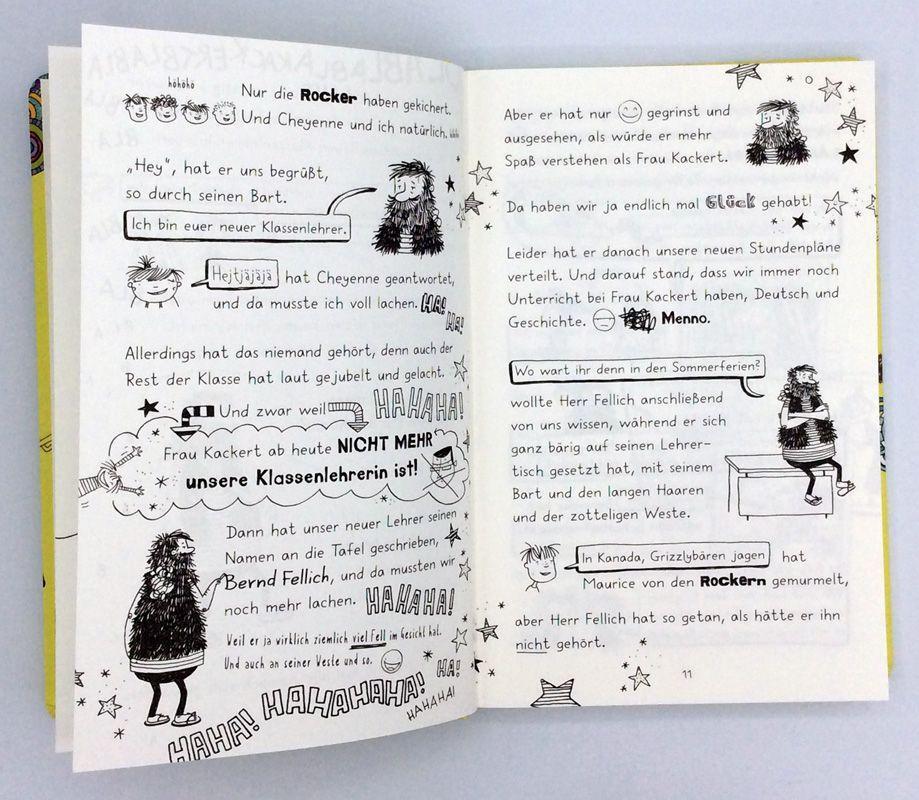 höhöhö
Nur die Rocker haben gekichert.
Und Cheyenne und ich natürlich.
„Hey“, hat er uns begrüßt,
so durch seinen Bart.
Ich bin euer neuer Klassenlehrer.
Hejtjäjäjä hat Cheyenne geantwortet,
und da musste ich voll lachen. HA!
HA!
Allerdings hat das niemand gehört, denn auch der
Rest der Klasse hat laut gejubelt und gelacht.
Und zwar weil HAHAHA!
Frau Kackert ab heute NICHT MEHR
unsere Klassenlehrerin ist!
Dann hat unser neuer Lehrer seinen
Namen an die Tafel geschrieben,
Bernd Fellich, und da mussten wir
noch mehr lachen. HAHAHA!
Weil er ja wirklich ziemlich viel Fell im Gesicht hat.
Und auch an seiner Weste und so.
HA!
HAHA! HAHAHAHA! HAHAHA!
Aber er hat nur gegrinst und
ausgesehen, als würde er mehr
Spaß verstehen als Frau Kackert.
Da haben wir ja endlich mal Glück gehabt!
Leider hat er danach unsere neuen Stundenpläne
verteilt. Und darauf stand, dass wir immer noch
Unterricht bei Frau Kackert haben, Deutsch und
Geschichte. Menno.
Wo wart ihr denn in den Sommerferien?
wollte Herr Fellich anschließend
von uns wissen, während er sich
ganz bärig auf seinen Lehrer-
tisch gesetzt hat, mit seinem
Bart und den langen Haaren
und der zotteligen Weste.
In Kanada, Grizzlybären jagen hat
Maurice von den Rockern gemurmelt,
aber Herr Fellich hat so getan, als hätte er ihn
nicht gehört.
11